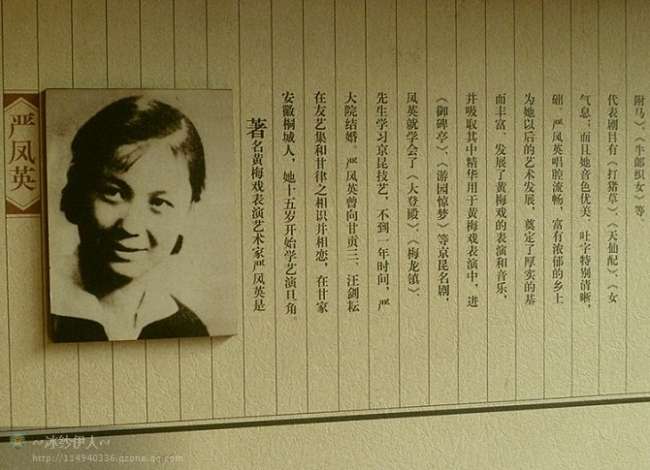 严凤英
著名黄梅戏表演艺术家严凤英是
安徽桐城人，她十五岁开始学艺演旦角。
在友艺集和甘律之相识并相恋，在甘家
大院结婚。严凤英曾向甘贡三、汪剑耘
先生学习京昆技艺，不到一年时间，严
凤英就学会了《大登殿》、《梅龙镇》、
《御碑亭》、《游园惊梦》等京昆名剧，
并吸取其中精华用于黄梅戏表演中，进
而丰富、发展了黄梅戏的表演和音乐，
为她以后的艺术发展，奠定了厚实的基
础。严凤英唱腔流畅，富有浓郁的乡土
气息；而且她音色优美、吐字特别清晰，
代表剧目有《打猪草》、《天仙配》、《女
附马》、《牛郎织女》等。
~冰纱伊人~
http://114940336.qzone.qq.com